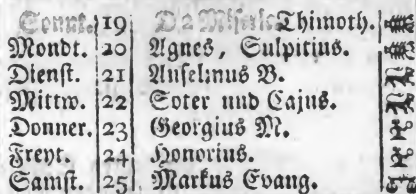 Sonnt. 19 D 2 Miseric. Thimoth.
Mondt. 20 Agnes, Sulpitius.
Dienſt. 21 Anſelmus B.
Mittw. 22 Soter und Cajus.
Donner. 23 Georgius M.
Freyt. 24 Honorius.
Samſt. 25 Markus Evang.